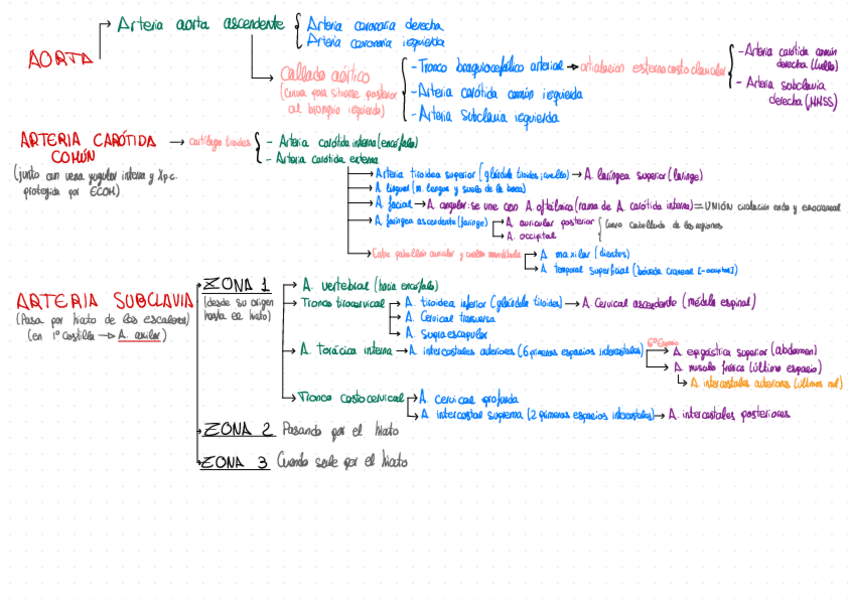 AORTA
Arteria aorta ascendente
Arteria coronaria derecha
Arteria coronaria izquierda
Callado aórtico
(curva para situarse posterior
al bronquio izquierdo)
- Tronco braquiocefálico arterial → articulación esternocostoclavicular
- Arteria carótida común izquierda
- Arteria subclavia izquierda
- Arteria carótida común
derecha (cuello)
- Arteria subclavia
derecha (MMSS)
ARTERIA CARÓTIDA
COMÚN
(junto con vena yugular interna y X p.c.
protegida por ECOM)
→ cartílago tiroides
- Arteria carótida interna (encéfalo)
- Arteria carótida externa
Arteria tiroidea superior (glándula tiroides, cuello) → A. laríngea superior (laringe)
A. lingual (m. lengua y suelo de la boca)
A. facial → A. angular: se une con A. oftálmica (rama de A. carótida interna) = UNIÓN circulación endo y exocraneal
A. faríngea ascendente (faringe)
A. auricular posterior
A. occipital
cuero cabelludo de las regiones
Entre pabellón auricular y cuello mandíbula
A. maxilar (dientes)
A. temporal superficial (bóveda craneal [-occipital])
ARTERIA SUBCLAVIA
(Pasa por hiato de los escalenos)
(en 1ª costilla → A. axilar)
ZONA 1
(desde su origen
hasta el hiato)
A. vertebral (hacia encéfalo)
Tronco tirocervical
A. tiroidea inferior (glándula tiroides) → A. Cervical ascendente (médula espinal)
A. Cervical transversa
A. Supraescapular
A. Torácica interna → A. intercostales anteriores (6 primeros espacios intercostales)
6º Espacio
A. epigástrica superior (abdomen)
A. musculo frénica (último espacio)
A. intercostales anteriores
Tronco costocervical
A. cervical profunda
A. intercostal suprema (2 primeros espacios intercostales) → A. intercostales posteriores
ZONA 2 Pasando por el hiato
ZONA 3 Cuando sale por el hiato